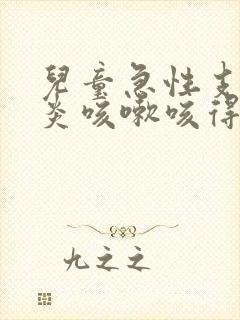 兒童急性支
炎咳嗽咳得
九之之